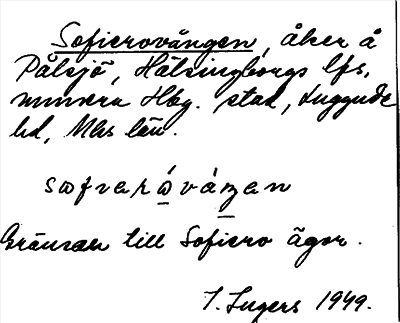 Sofierovången, åker å
Pålsjö, Hälsingborgs lfs,
numera Hbg. stad, Luggude
hd, Mhs län.
Gränsar till Sofiero ägor.
I. Ingers 1949.